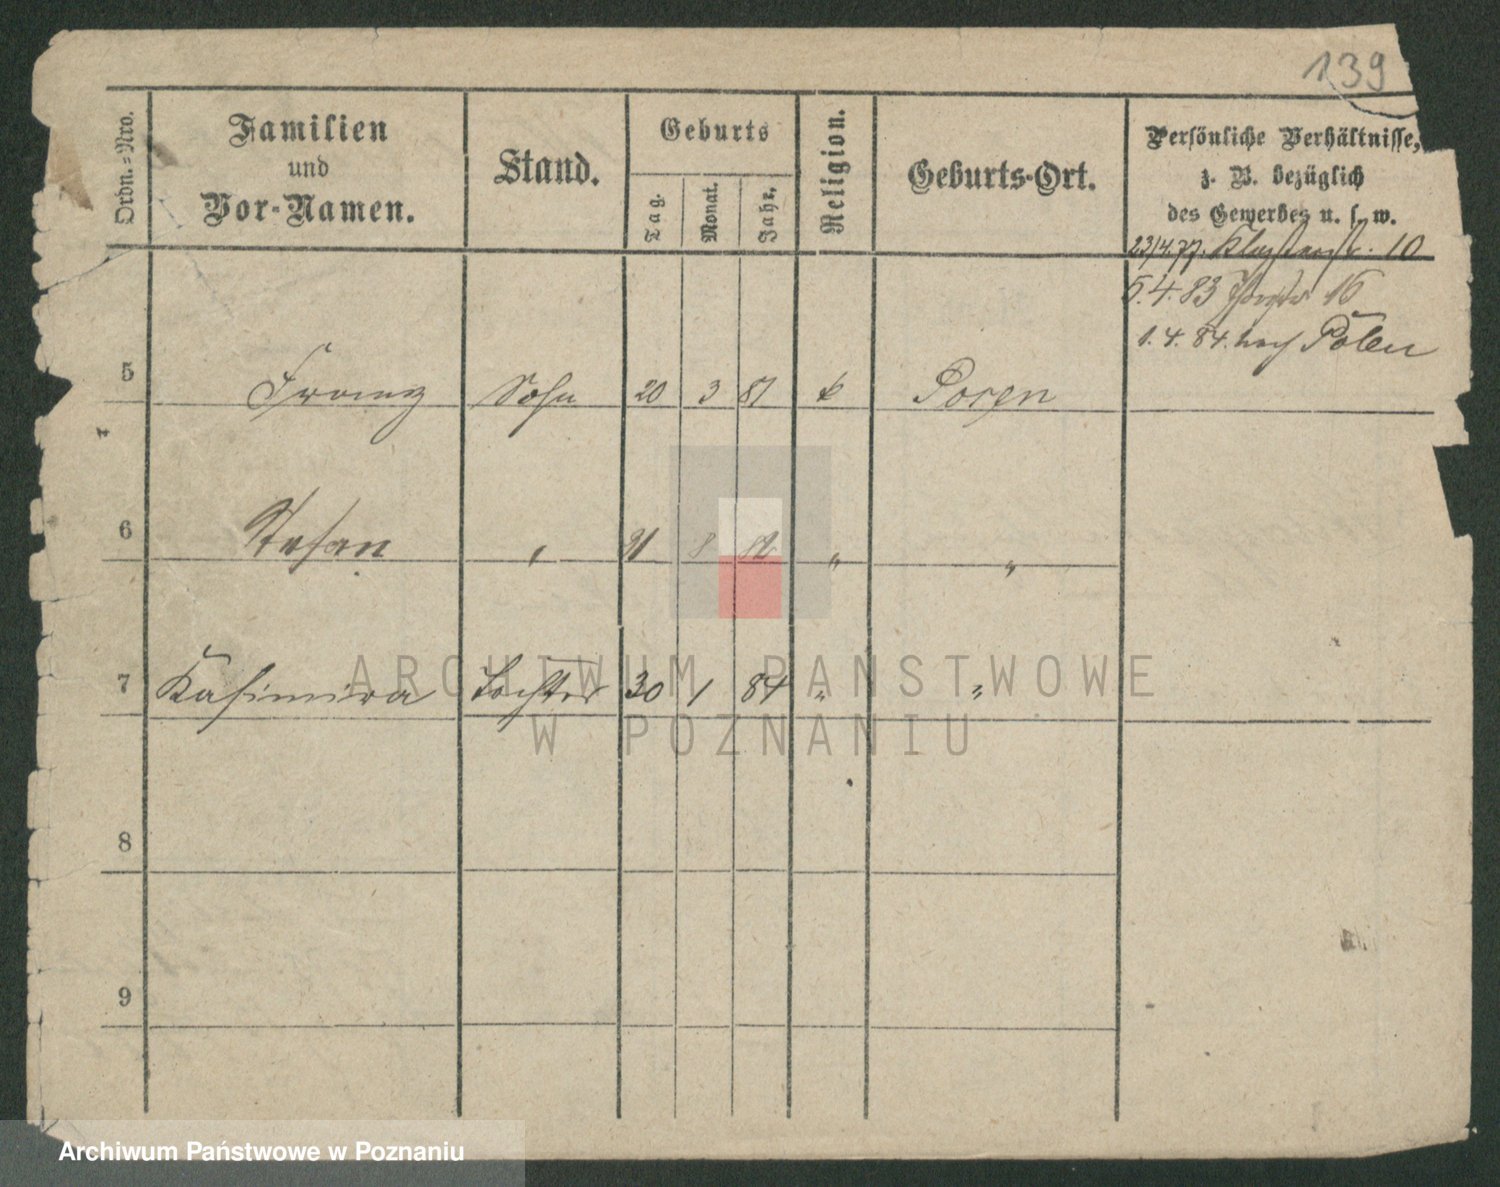 139
Ordn.=Nro.
Familien
und
Vor-Namen.
Stand.
Geburts
Tag.
Monat.
Jahr.
Religion.
Geburts-Ort.
Persönliche Verhältnisse,
z. B. bezüglich
des Gewerbes u. s. w.
23/4.77. Klosterstr. 10
5.4.83 16
1.4.84. nach Polen
5 Franz Sohn 20 3 81 k Posen
6 Stefan " 31 8 82 " "
7 Kasimira Tochter 30 1 84 " "
8
9
ARCHIWUM PAŃSTWOWE
W POZNANIU
Archiwum Państwowe w Poznaniu